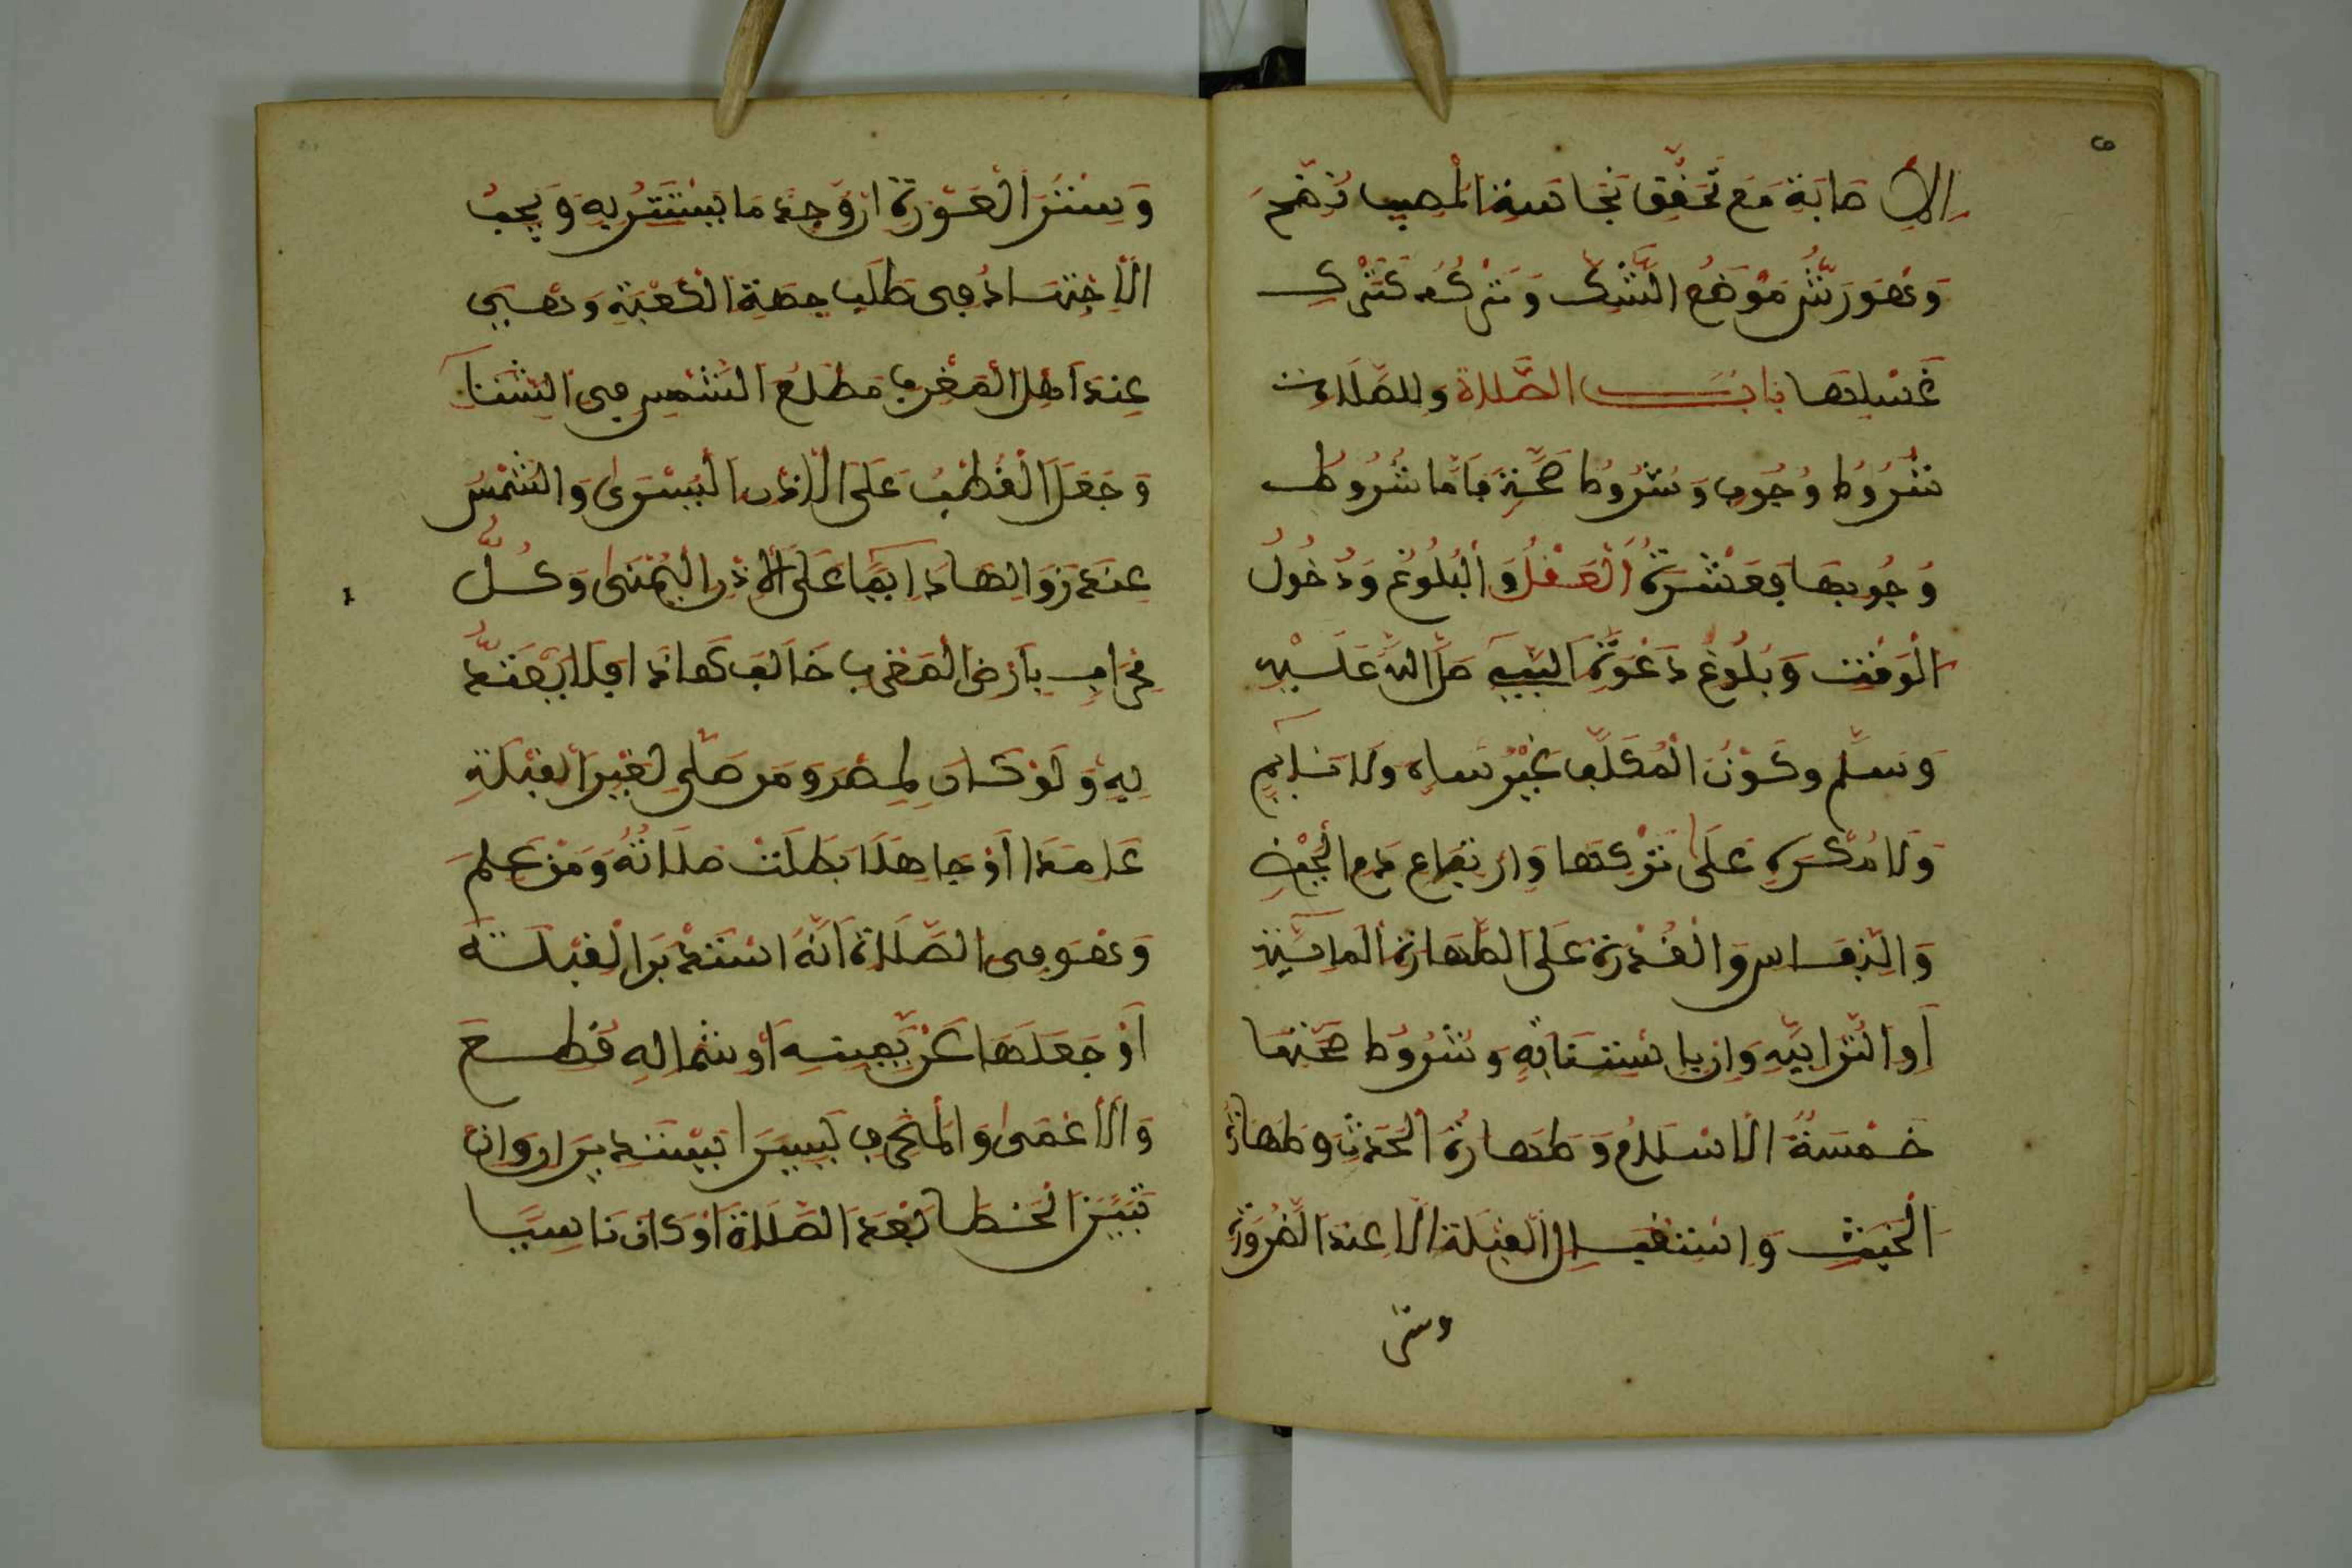 الإصابة مع تحقق نجاسة المصيب نضح
وهو رش موضع الشك وتركه كترك
غسلها باب الصلاة وللصلاة
شروط وجوب وشروط صحة فأما شروط
وجوبها فعشرة العقل والبلوغ ودخول
الوقت وبلوغ دعوة النبي صلى الله عليه
وسلم وكون المكلف غير ساه ولا نايم
ولا مكره على تركها وارتفاع دم الحيض
والنفاس والقدرة على الطهارة المائية
أو الترابية وان باستنابة وشروط صحتها
خمسة الاسلام وطهارة الحدث وطهارة
الخبث واستقبال القبلة الا عند الضرورة
وستر
وستر العورة ان وجد ما يستتر به ويجب
الاجتهاد في طلب جهة الكعبة وهي
عند اهل المغرب مطلع الشمس في الشتاء
وجعل القطب على الاذن اليسرى والشمس
عند زوالها دايما على الاذن اليمنى وكل
محراب بارض المغرب خالف هذا فلا يقتد
به ولو كان لمصر ومن صلى لغير القبلة
عامدا أو جاهلا بطلت صلاته ومن علم
وهو في الصلاة أنه استدبر القبلة
أو جعلها عن يمينه أو شماله قطع
والأعمى والمنحرف يسيرا يبتديان وان
تبين الخطا بعد الصلاة أو كان ناسيا